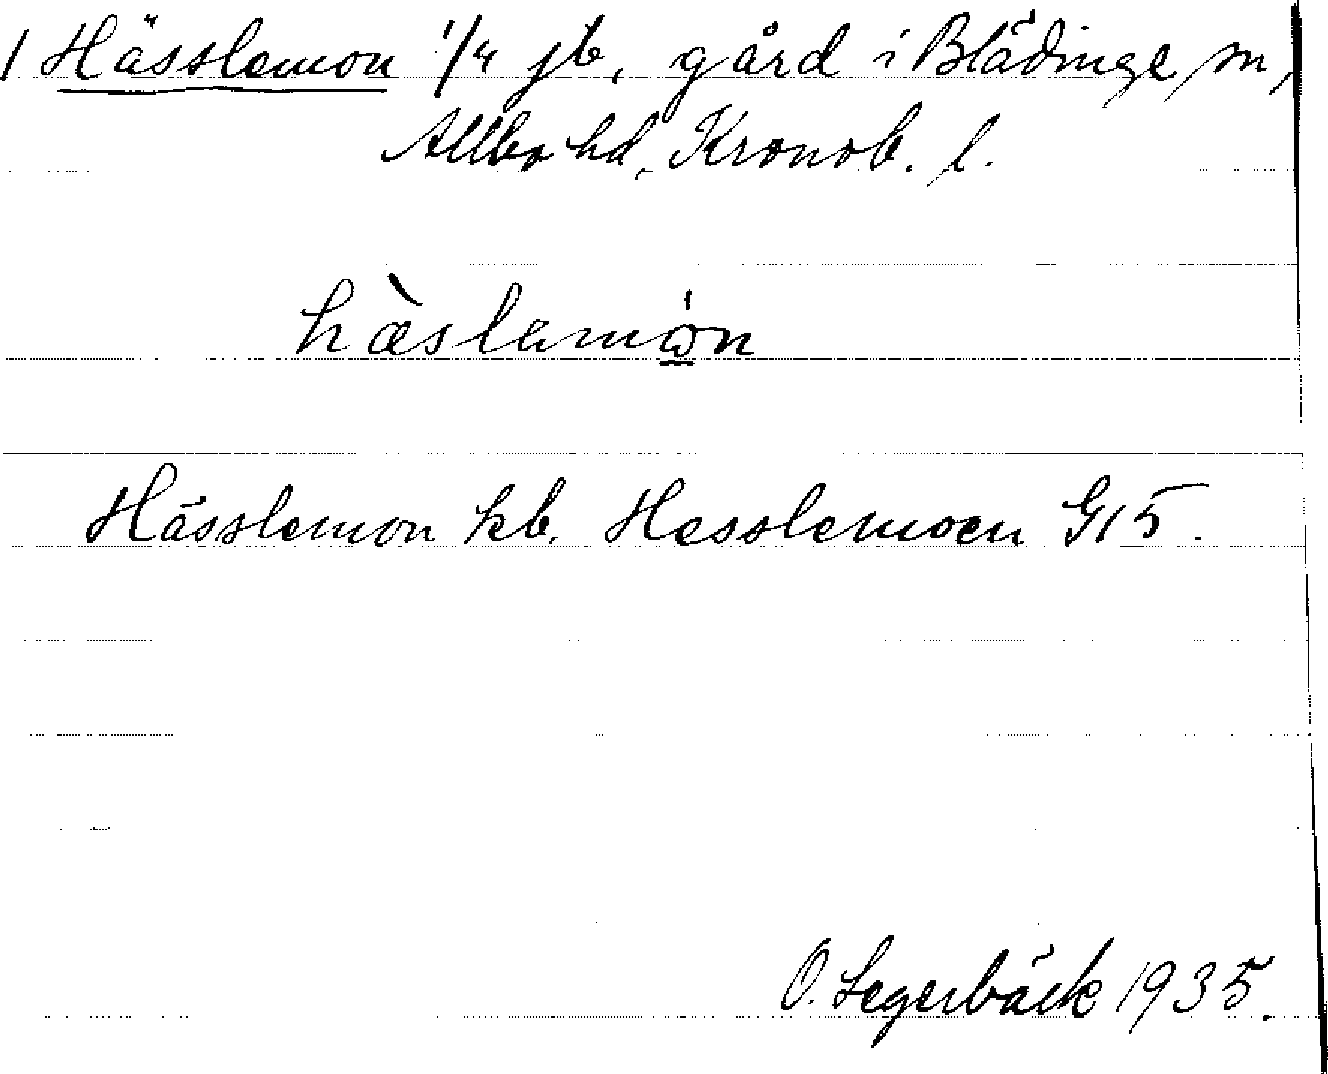 1 Hässlemon 1/4 jb, gård i Blädinge sn,
Allbo hd, Kronob. l.
hæ̀slemωn
Hässlemon kb. Hesslemoen G15.
O. Segerbäck 1935.